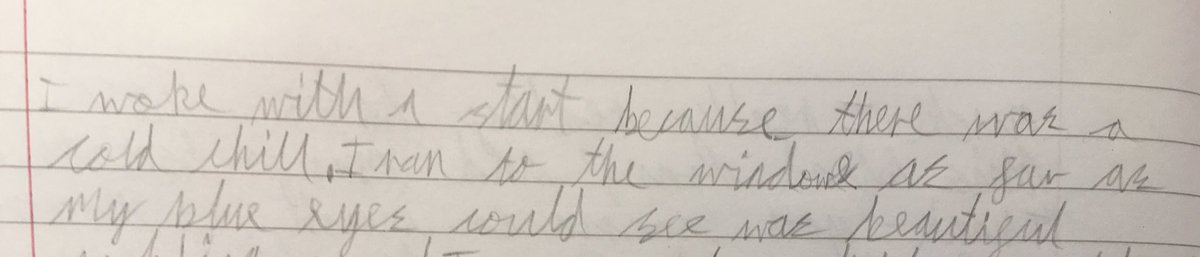 I woke with a start because there was a
cold chill, I ran to the window as far as
my blue eyes could see was beautiful